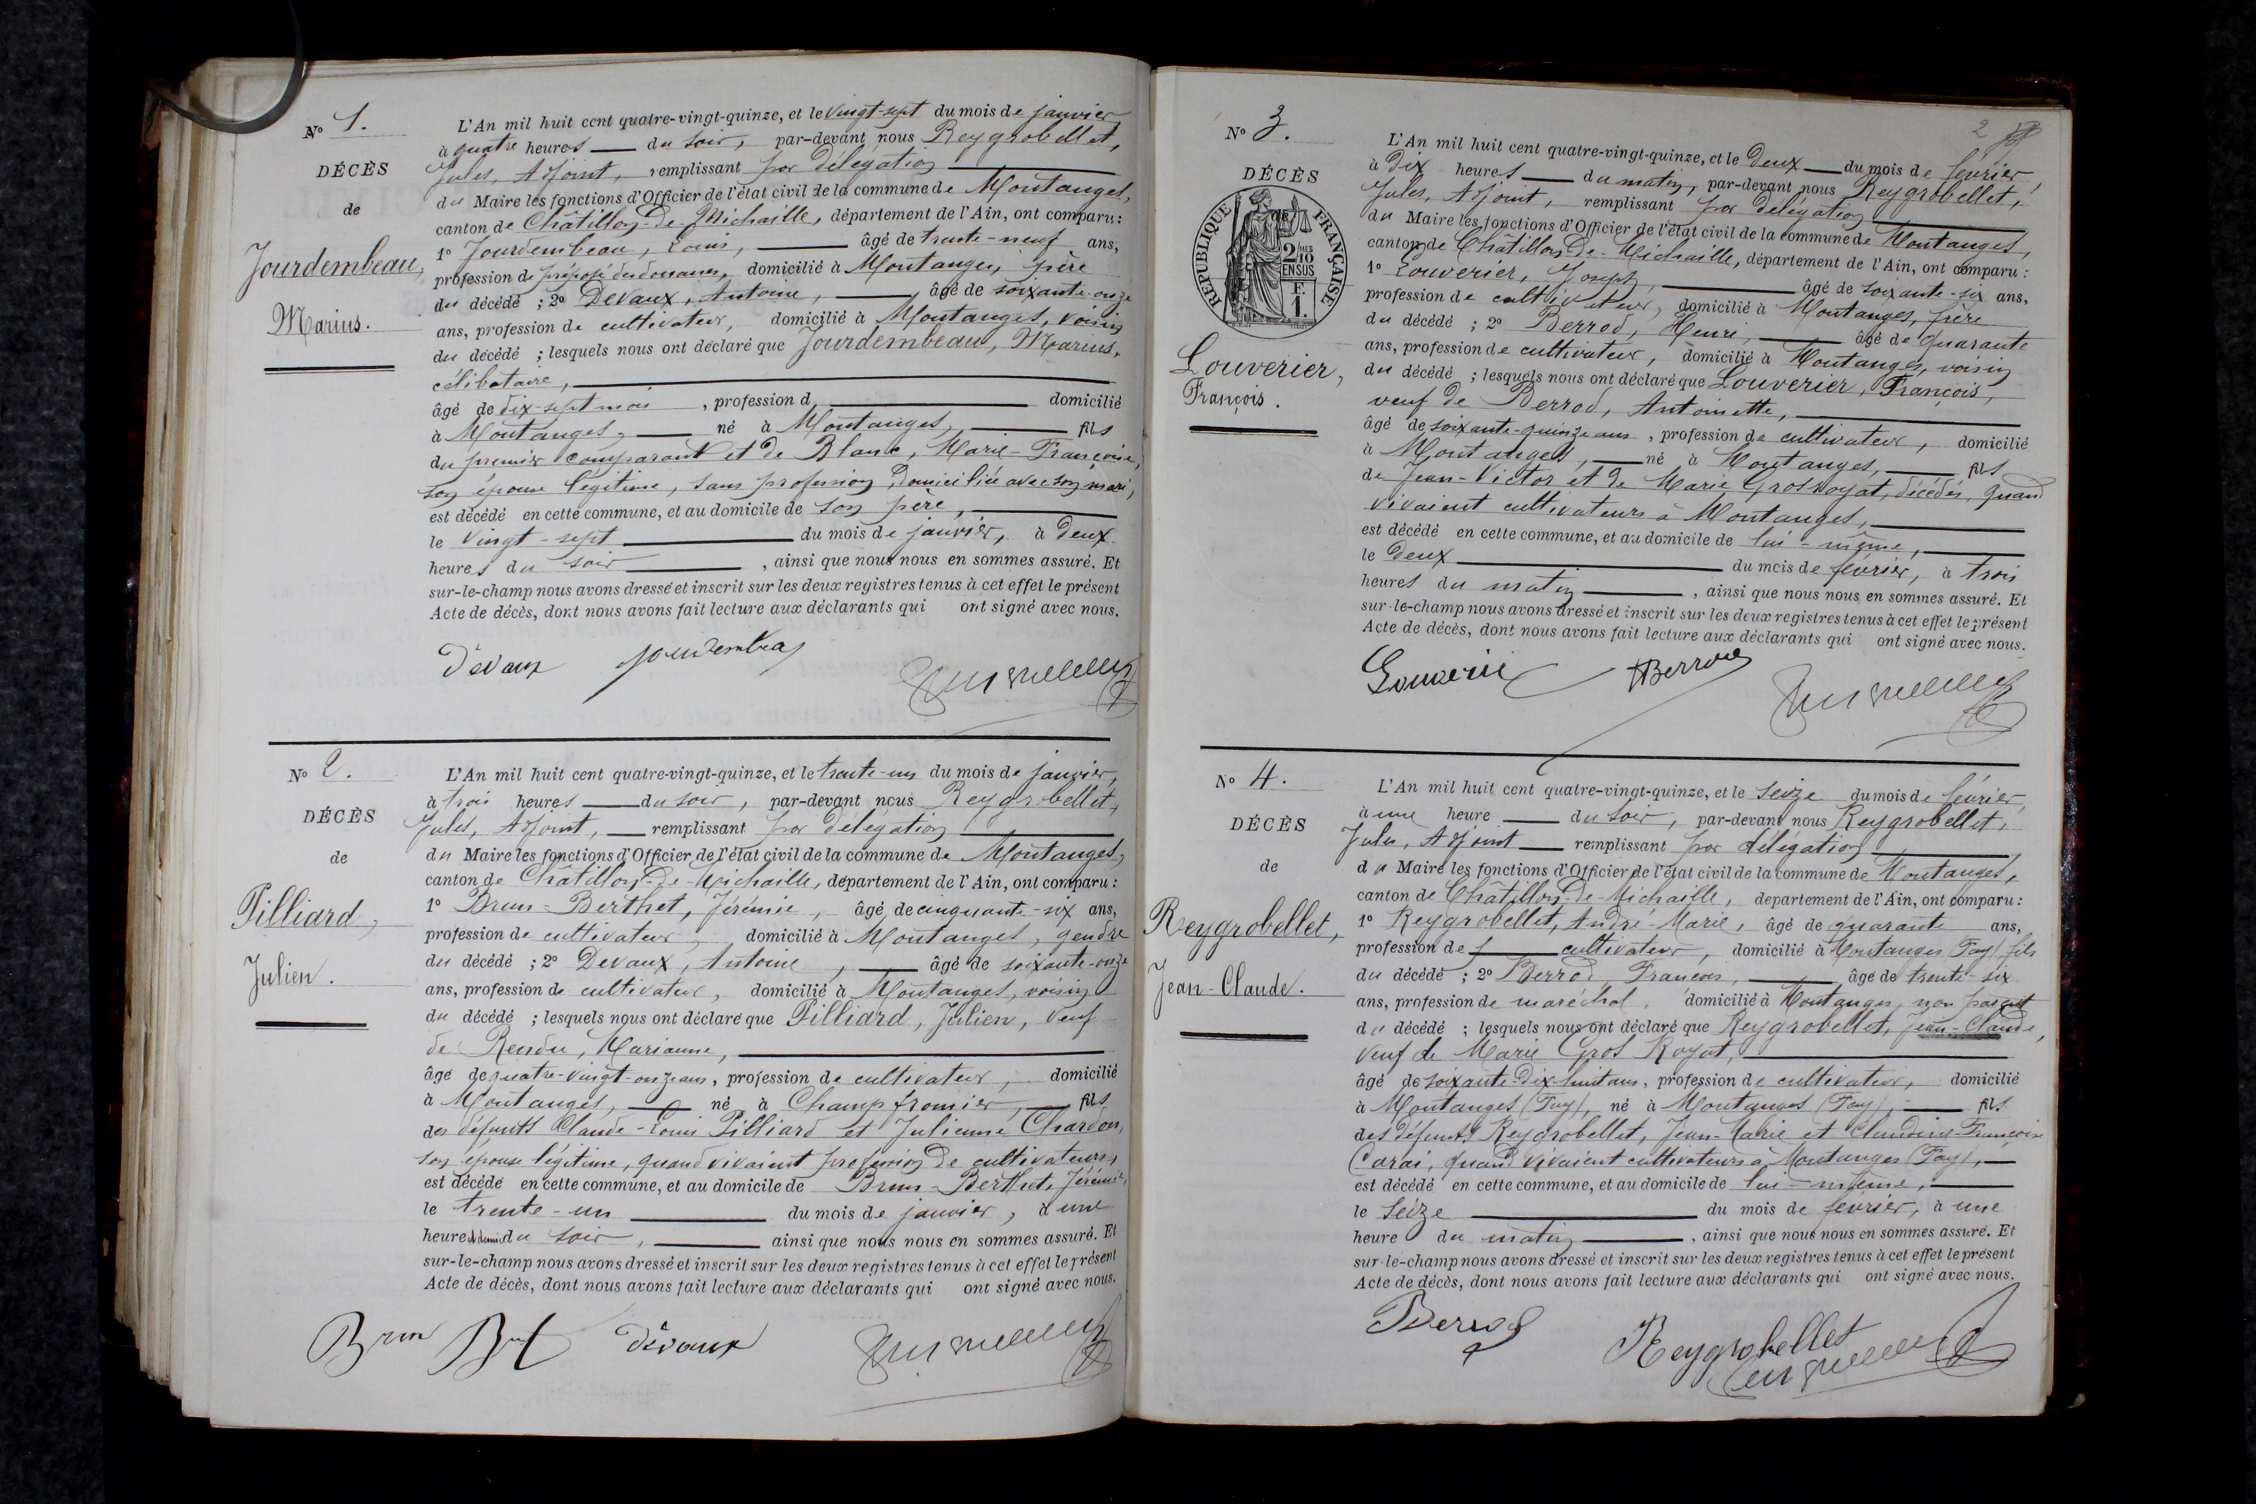 No 1.
DÉCÈS
de
Jourdembeau,
Marius.
L'An mil huit cent quatre-vingt-quinze, et le vingt-sept du mois de janvier
à quatre heures du soir, par-devant nous Reygrobellet,
Jules, Adjoint, remplissant par délégation
du Maire les fonctions d'Officier de l'état civil de la commune de Montanges,
canton de Châtillon-de-Michaille, département de l'Ain, ont comparu :
1o Jourdembeau, Louis, âgé de trente-neuf ans,
profession de préposé des douanes, domicilié à Montanges, père
du décédé ; 2o Devaux, Antoine, âgé de soixante-onze
ans, profession de cultivateur, domicilié à Montanges, voisin
du décédé ; lesquels nous ont déclaré que Jourdembeau, Marius,
célibataire,
âgé de dix-sept mois, profession d domicilié
à Montanges, né à Montanges, fils
du premier comparant et de Blanc, Marie-Françoise,
son épouse légitime, sans profession, domiciliée avec son mari,
est décédé en cette commune, et au domicile de son père,
le vingt-sept du mois de janvier, à deux
heures du soir, ainsi que nous nous en sommes assuré. Et
sur-le-champ nous avons dressé et inscrit sur les deux registres tenus à cet effet le présent
Acte de décès, dont nous avons fait lecture aux déclarants qui ont signé avec nous.
Dévaux
No 2.
DÉCÈS
de
Pilliard,
Julien.
L'An mil huit cent quatre-vingt-quinze, et le trente-un du mois de janvier,
à trois heures du soir, par-devant nous Reygrobellet,
Jules, Adjoint, remplissant par délégation
du Maire les fonctions d'Officier de l'état civil de la commune de Montanges,
canton de Châtillon-de-Michaille, département de l'Ain, ont comparu :
1o Brun-Berthet, Jérémie, âgé de cinquante-six ans,
profession de cultivateur, domicilié à Montanges, gendre
du décédé ; 2o Devaux, Antoine, âgé de soixante-onze
ans, profession de cultivateur, domicilié à Montanges, voisin
du décédé ; lesquels nous ont déclaré que Pilliard, Julien, veuf
de Rendu, Marianne,
âgé de quatre-vingt-onze ans, profession de cultivateur, domicilié
à Montanges, né à Champfromier, fils
des défunts Claude-Louis Pilliard et Julienne Chardon,
son épouse légitime, quand vivaient profession de cultivateurs,
est décédé en cette commune, et au domicile de Brun-Berthet, Jérémie,
le trente-un du mois de janvier, à une
heure et demie du soir, ainsi que nous nous en sommes assuré. Et
sur-le-champ nous avons dressé et inscrit sur les deux registres tenus à cet effet le présent
Acte de décès, dont nous avons fait lecture aux déclarants qui ont signé avec nous.
Brun Dévaux
2
No 3.
DÉCÈS
de
RÉPUBLIQUE FRANÇAISE
2 MES
10
EN SUS
F.
1.
Louverier,
François.
L'An mil huit cent quatre-vingt-quinze, et le deux du mois de février,
à dix heures du matin, par-devant nous Reygrobellet,
Jules, Adjoint, remplissant par délégation
du Maire les fonctions d'Officier de l'état civil de la commune de Montanges,
canton de Châtillon-de-Michaille, département de l'Ain, ont comparu :
1o Louverier, Joseph, âgé de soixante-six ans,
profession de cultivateur, domicilié à Montanges, frère
du décédé ; 2o Berrod, Henri, âgé de quarante
ans, profession de cultivateur, domicilié à Montanges, voisin
du décédé ; lesquels nous ont déclaré que Louverier, François,
veuf de Berrod, Antoinette,
âgé de soixante-quinze ans, profession de cultivateur, domicilié
à Montanges, né à Montanges, fils
de Jean-Victor et de Marie Grosroyat, décédés, quand
vivaient cultivateurs à Montanges,
est décédé en cette commune, et au domicile de lui-même,
le deux du mois de février, à trois
heures du matin, ainsi que nous nous en sommes assuré. Et
sur-le-champ nous avons dressé et inscrit sur les deux registres tenus à cet effet le présent
Acte de décès, dont nous avons fait lecture aux déclarants qui ont signé avec nous.
HBerrod
No 4.
DÉCÈS
de
Reygrobellet,
Jean-Claude.
L'An mil huit cent quatre-vingt-quinze, et le seize du mois de février,
à une heure du soir, par-devant nous Reygrobellet,
Jules, Adjoint remplissant par délégation
du Maire les fonctions d'Officier de l'état civil de la commune de Montanges,
canton de Châtillon-de-Michaille, département de l'Ain, ont comparu :
1o Reygrobellet, André-Marie, âgé de quarante ans,
profession de cultivateur, domicilié à Montanges (Fay) fils
du décédé ; 2o Berrod François, âgé de trente-six
ans, profession de maréchal, domicilié à Montanges, non parent
du décédé ; lesquels nous ont déclaré que Reygrobellet, Jean-Claude,
veuf de Marie Gros Royat,
âgé de soixante-dix-huit ans, profession de cultivateur, domicilié
à Montanges (Fay), né à Montanges (Fay), fils
des défunts Reygrobellet, Jean-Marie et Claudine-Françoise
quand vivaient cultivateurs à Montanges (Fay),
est décédé en cette commune, et au domicile de lui-même,
le seize du mois de février, à une
heure du matin, ainsi que nous nous en sommes assuré. Et
sur-le-champ nous avons dressé et inscrit sur les deux registres tenus à cet effet le présent
Acte de décès, dont nous avons fait lecture aux déclarants qui ont signé avec nous.
Berrod
Reygrobellet